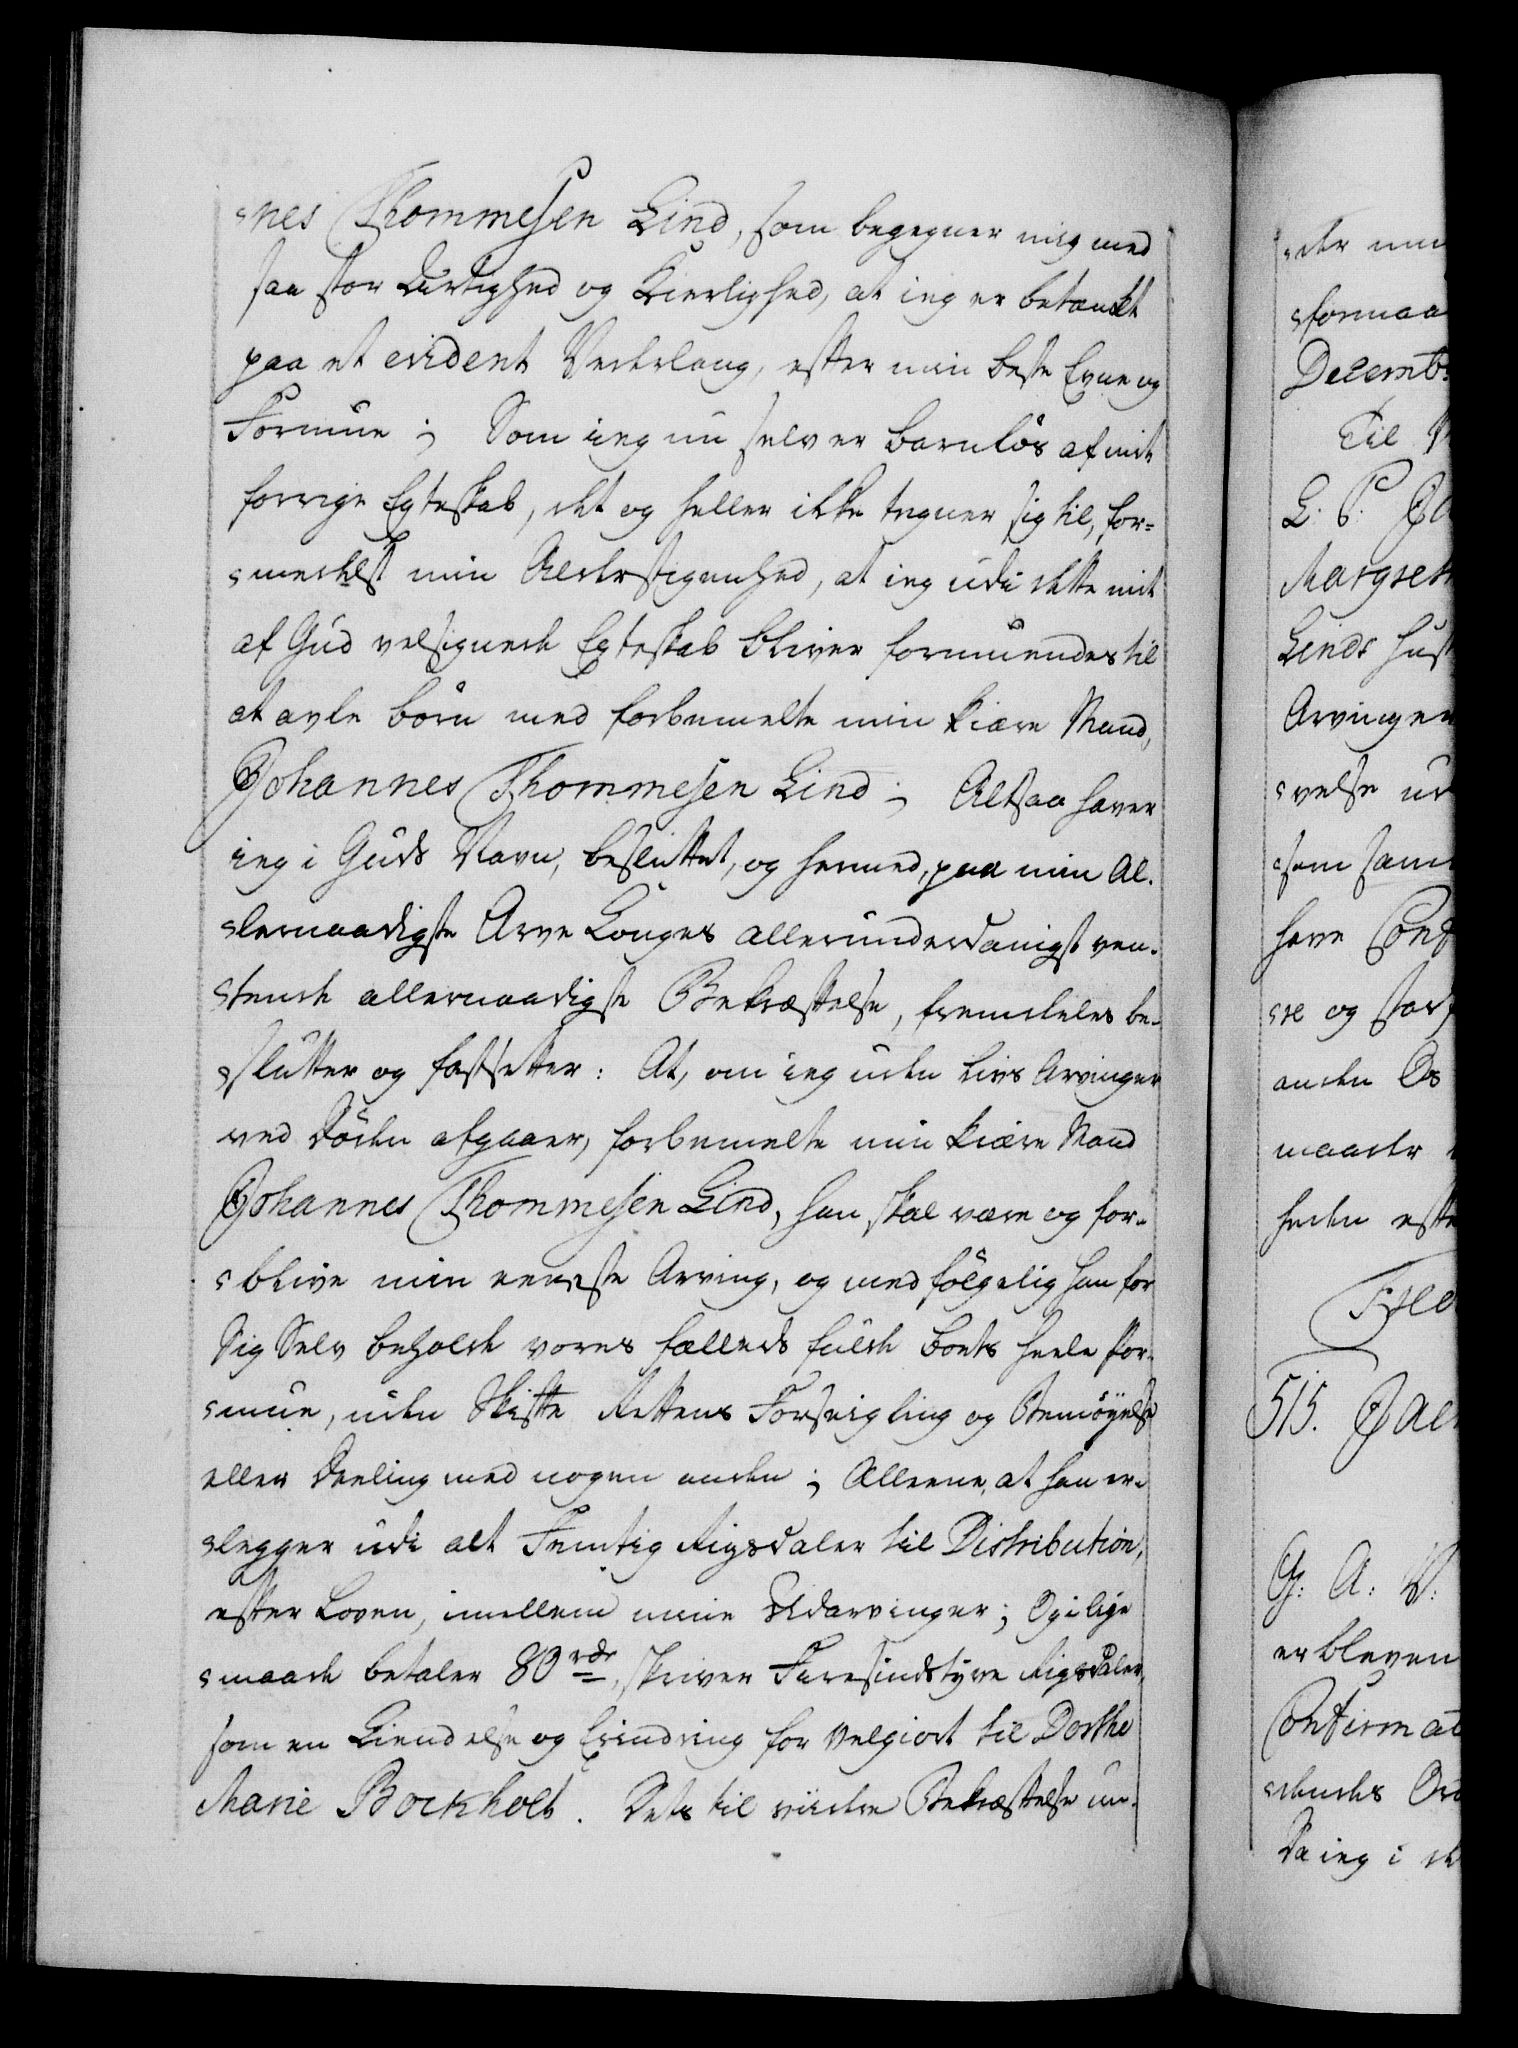 nes Thommesen Lind, som begegner mig med
saa stor Artighed og Kierlighed, at ieg er betænkt
paa et evident Vederlang, efter min beste Evne og
Formue; Som ieg nu selv er barnløs af mit
forrige Egteskab, det og heller ikke tegner sig til, for¬
medelst min Alderstigenhed, at ieg udi dette mit
af Gud velsignede Egteskab bliver formuendes til
at avle børn med forbemelte min kiære Mand,
Johannes Thommesen Lind; Altsaa haver
ieg i Guds Navn, besluttet, og hermed, paa min Al¬
lernaadigste Arve Konges allerunderdanigst ven¬
tende allernaadigste Bekræftelse, fremdeles be¬
slutter og fastsetter: At, om ieg uden Livs Arvinger
ved Døden afgaaer, forbemelte min kiære Mand
Johannes Thommesen Lind, han skal være og for¬
blive min eeneste Arving, og medfølgelig han for
Sig Selv beholde vores fælleds fulde Boets heele For¬
mue, uden Skifte Rettens Forseigling og Bemøyelse
eller Deeling med nogen anden; Alleene, at han er¬
legger udi alt Femtig Rigsdaler til Distribution,
efter Loven, imellem mine Udarvinger; Og i lige
maade betaler 80 rdr, skriver Firesindstyve Rigsdaler,
som en Kiendelse og Erindring for velgiort til Dorthe
Marie Bockholt. Dets til viidere Bekræftelse un¬
der min
formaa
Decembr
Til
L. S.
Margret
Linds Hust
Arvinger
velse ud
som sam
have Conf
re og star
anden Os
maader
heden efte
515. Jac
G: A: V:
er bleven
Confirmat
dendes Ord
Da ieg i de